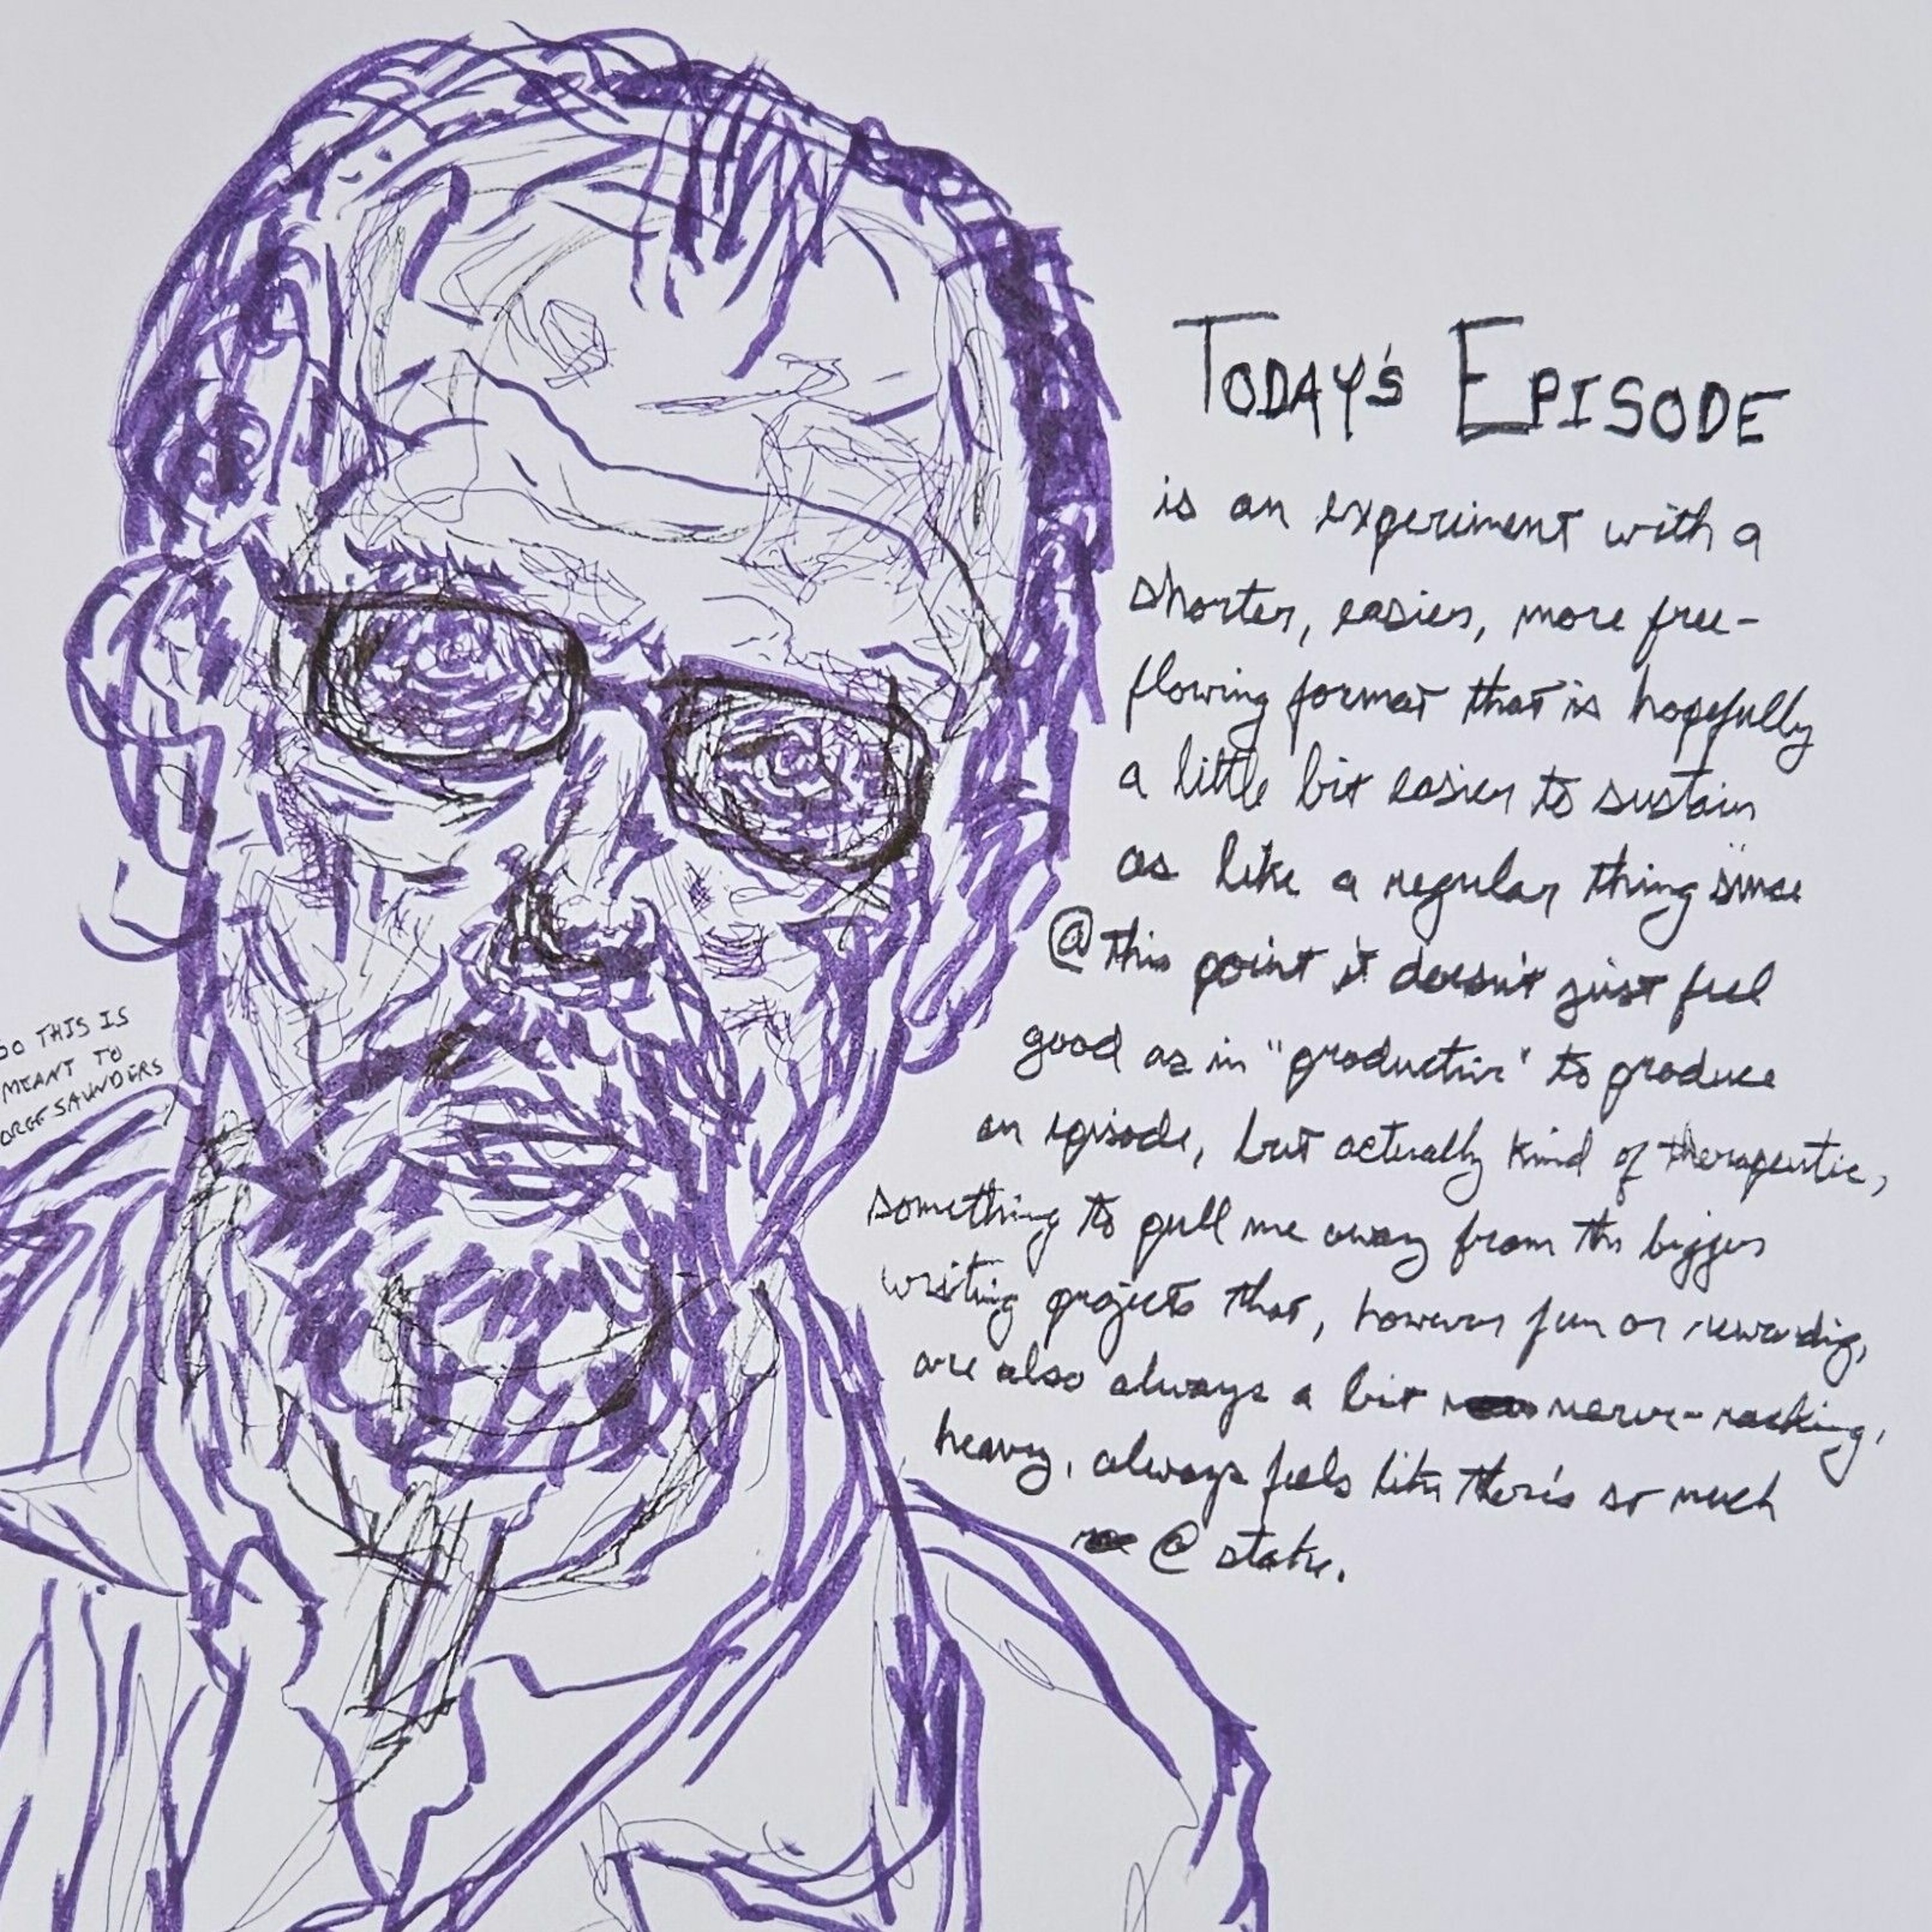 TODAY'S EPISODE
is an experiment with a
shorter, easier, more free-
flowing format that is hopefully
a little bit easier to sustain
as like a regular thing since
@ this point it doesn't just feel
good as in "productive" to produce
an episode, but actually kind of therapeutic,
something to pull me away from the bigger
writing projects that, however fun or rewarding,
are also always a bit nerve-racking,
heavy, always feels like there's so much
@ stake.
SO THIS IS
MEANT TO
ORGE SAUNDERS